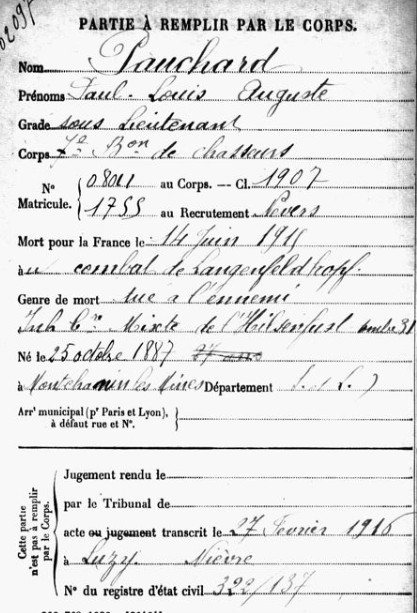 PARTIE À REMPLIR PAR LE CORPS.
Nom Pauchard
Prénoms Paul Louis Auguste
Grade sous Lieutenant
Corps 7e Bon de chasseurs
N° Matricule. { 08011 au Corps. — Cl. 1907
1755 au Recrutement Nevers
Mort pour la France le 14 Juin 1915
à au combat de Langenfeldkopf
Genre de mort tué à l'ennemi
Inh Mixte de l'Hilsenfirst tombe 31
Né le 25 octobre 1887 27 ans
à Montchanin les Mines Département S. et L.
Arrt municipal (pr Paris et Lyon), à défaut rue et N°.
Cette partie n'est pas à remplir par le Corps.
Jugement rendu le
par le Tribunal de
acte ou jugement transcrit le 27 Février 1916
à Luzy. Nièvre
N° du registre d'état civil 322/137